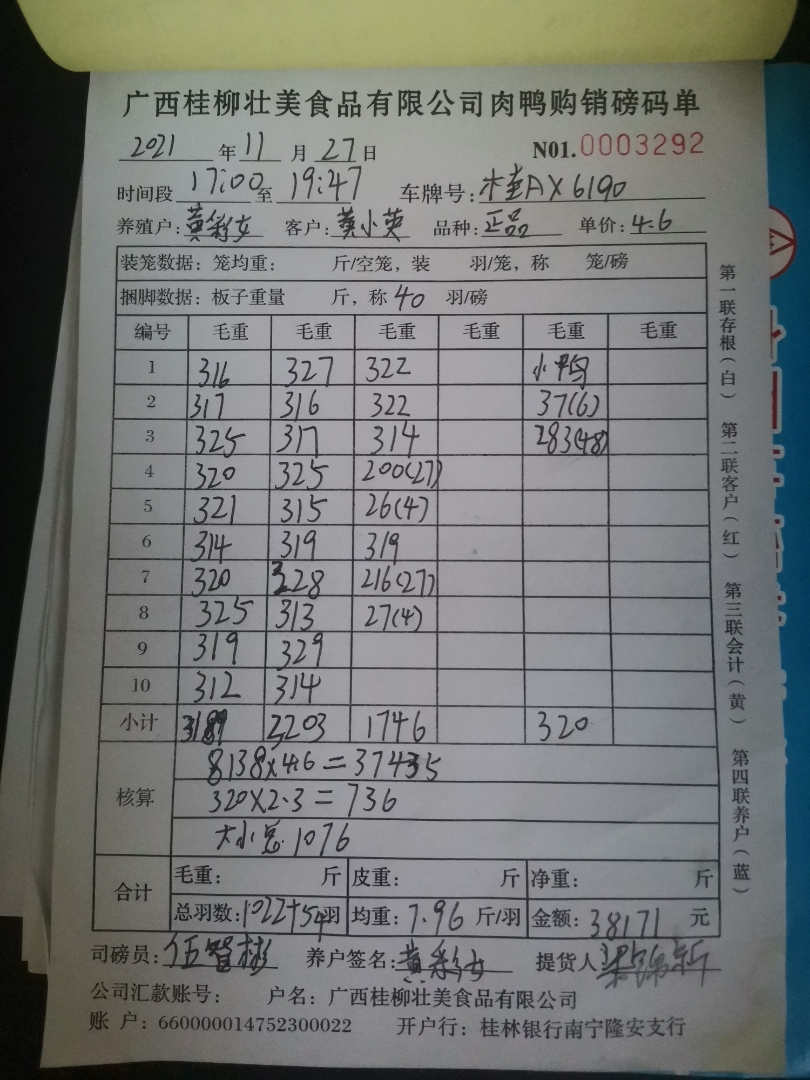 广西桂柳壮美食品有限公司肉鸭购销磅码单
2021 年 11 月 27 日 N01.0003292
时间段 17:00 至 19:47 车牌号: 桂AX6190
养殖户: 黄彩女 客户: 黄小英 品种: 正品 单价: 4.6
装笼数据: 笼均重: 斤/空笼, 装 羽/笼, 称 笼/磅
捆脚数据: 板子重量 斤, 称 40 羽/磅
编号 毛重 毛重 毛重 毛重 毛重 毛重
1 316 327 322 小鸭
2 317 316 322 37(6)
3 325 317 314 283(48)
4 320 325 200(27)
5 321 315 26(4)
6 314 319 319
7 320 328 216(27)
8 325 313 27(4)
9 319 329
10 312 314
小计 3189 3203 1746 320
核算
8138×4.6=37435
320×2.3=736
大小总 1076
合计
毛重: 斤 皮重: 斤 净重: 斤
总羽数: 1022+54羽 均重: 7.96 斤/羽 金额: 38171 元
司磅员: 伍智彬 养户签名: 黄彩女 提货人
公司汇款账号: 户名: 广西桂柳壮美食品有限公司
账 户: 660000014752300022 开户行: 桂林银行南宁隆安支行
第一联存根(白) 第二联客户(红) 第三联会计(黄) 第四联养户(蓝)